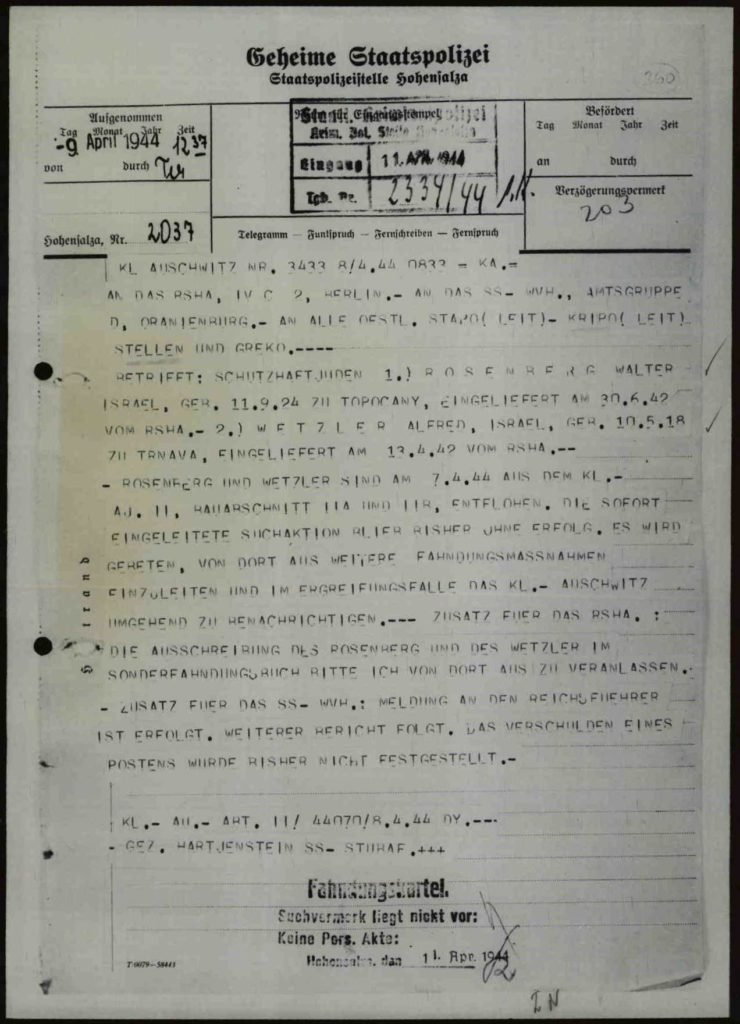 360
Geheime Staatspolizei
Staatspolizeistelle Hohensalza
Aufgenommen
Tag Monat Jahr Zeit
-9. April 1944 1237
von durch
Hohensalza, Nr. 2037
Eingangsstempel
Eingang 11. APR. 1944
Tgb. Nr. 2334/44
Telegramm — Funkspruch — Fernschreiben — Fernspruch
Befördert
Tag Monat Jahr Zeit
an durch
Verzögerungsvermerk
203
KL AUSCHWITZ NR. 3433 8/4.44 0833 = KA.=
AN DAS RSHA, IV C 2, BERLIN.- AN DAS SS- WVH., AMTSGRUPPE
D, ORANIENBURG.- AN ALLE OESTL. STAPO( LEIT)- KRIPO( LEIT)
STELLEN UND GREKO.----
BETRIFFT: SCHUTZHAFTJUDEN 1.) R O S E N B E R G WALTER
ISRAEL, GEB. 11.9.24 ZU TOPOCANY, EINGELIEFERT AM 30.6.42
VOM RSHA.- 2.) W E T Z L E R ALFRED, ISRAEL, GEB. 10.5.18
ZU TRNAVA, EINGELIEFERT AM 13.4.42 VOM RSHA.--
- ROSENBERG UND WETZLER SIND AM 7.4.44 AUS DEM KL.-
AU. II, BAUABSCHNITT IIA UND IIB, ENTFLOHEN. DIE SOFORT
EINGELEITETE SUCHAKTION BLIEB BISHER OHNE ERFOLG. ES WIRD
GEBETEN, VON DORT AUS WEITERE FAHNDUNGSMASSNAHMEN
EINZULEITEN UND IM ERGREIFUNGSFALLE DAS KL.- AUSCHWITZ
UMGEHEND ZU BENACHRICHTIGEN.--- ZUSATZ FUER DAS RSHA. :
DIE AUSSCHREIBUNG DES ROSENBERG UND DES WETZLER IM
SONDERFAHNDUNGSBUCH BITTE ICH VON DORT AUS ZU VERANLASSEN.-
- ZUSATZ FUER DAS SS- WVH.: MELDUNG AN DEN REICHSFUEHRER
IST ERFOLGT. WEITERER BERICHT FOLGT. DAS VERSCHULDEN EINES
POSTENS WURDE BISHER NICHT FESTGESTELLT.-
KL.- AU.- ABT. II/ 44070/8.4.44 DY.---
- GEZ. HARTJENSTEIN SS- STUBAF.+++
Fahndungskartei.
Suchvermerk liegt nicht vor:
Keine Pers. Akte:
Hohensalza, den 11. Apr. 1944
T 0079-58443
IN